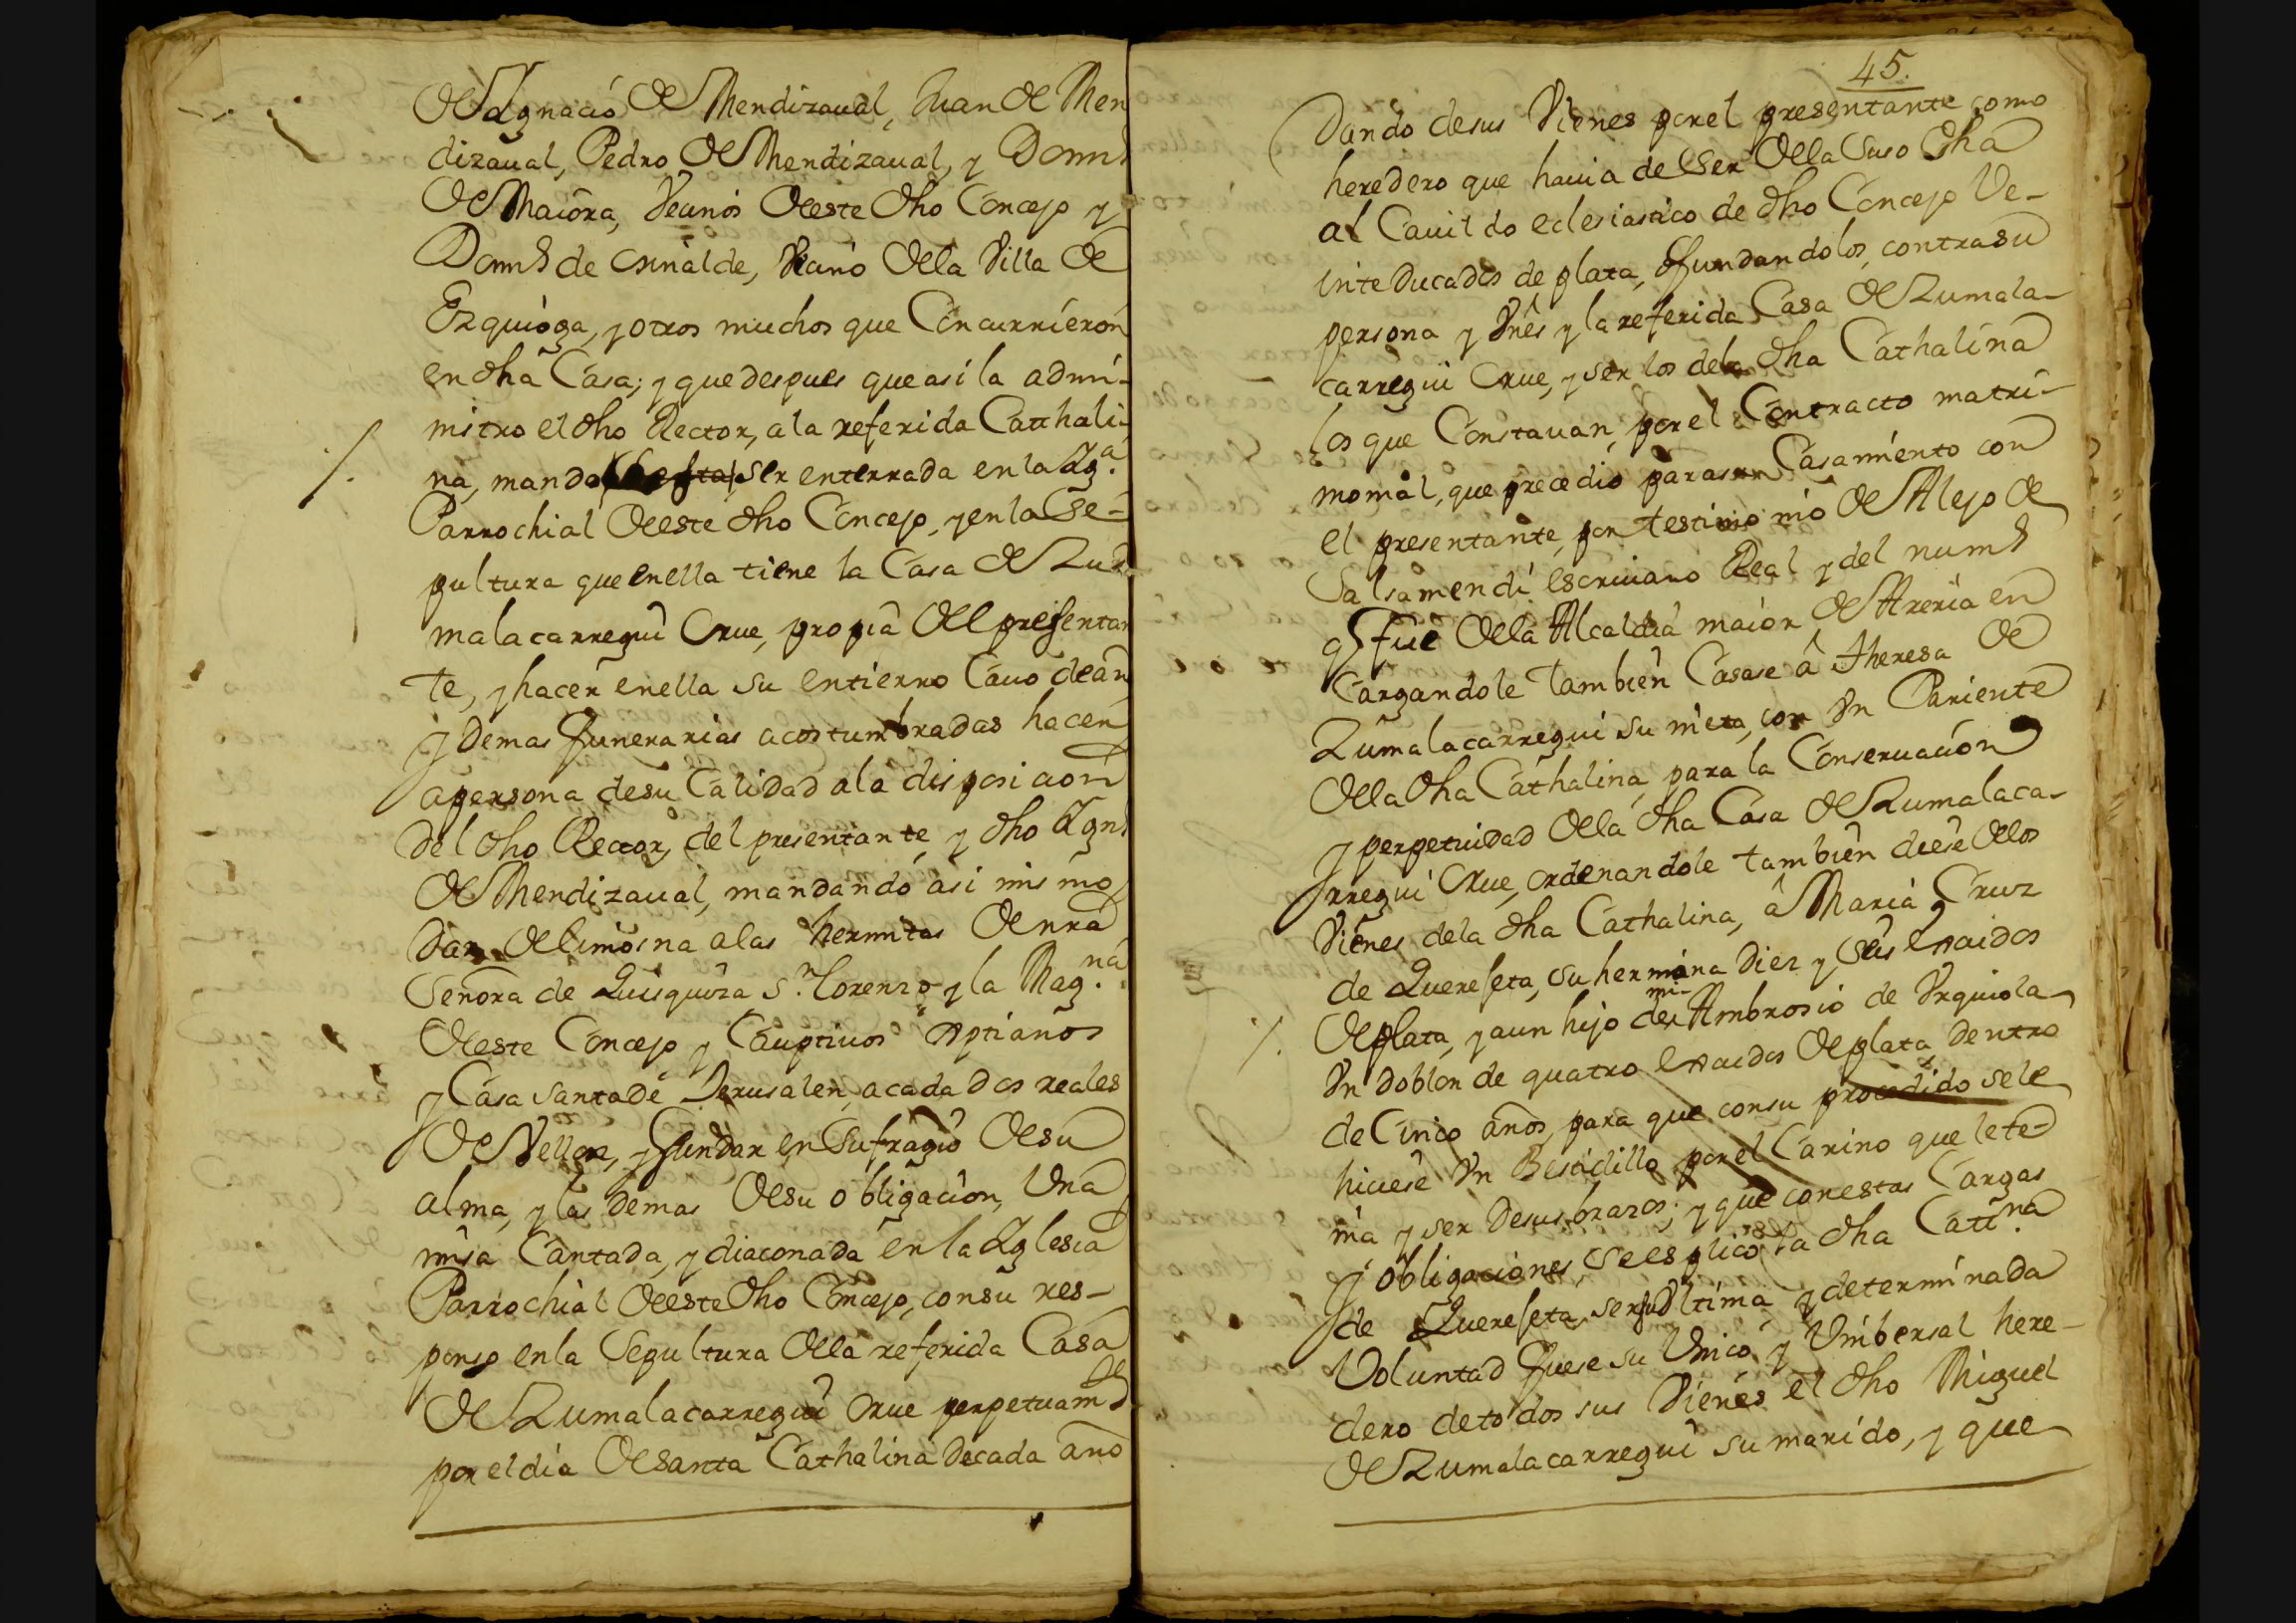 De Ygnacio de Mendizaual, Juan de Men
dizaual, Pedro de Mendizaual, y Doms
de Maiora, Vecinos deeste dho Concejo y
Doms de Orinalde, Vecino dela Villa de
Ezquioga, y otros muchos que Concurrieron
en dha Casa; y que despues que asi la admi-
nistro el dho Rector, a la referida Catthali-
na, mando ser enterrada en la Yga.
Parrochial deeste dho Concejo, y en la Se-
pultura que enella tiene la Casa de Zu-
malacarregui Orue, propia del presentan
te, y hacer enella su entierro Cauo deaño
y demas funerarias acostumbradas hacer
apersona desu Calidad ala disposicion
del dho Rector, del presentante, y dho Ygno
de Mendizaual, mandando asi mismo
dar de limosna alas hermitas de nra
Señora de Quisquiza Sn. Lorenzo y la Magna.
deeste Concejo y Cauptiuos Xptianos
y Casa santa de Jerusalen, acada dos reales
de Vellon, y fundar en Sufragio desu
alma, y las demas desu obligacion, Una
misa Cantada, y diaconada en la Yglesia
Parrochial deeste dho Concejo, con su res-
ponso en la Sepultura dela referida Casa
de Zumalacarregui Orue perpetuamte
por el dia de Santa Cathalina decada año
45.
Dando desus Vienes por el presentante como
heredero que hauia de Ser dela Suso dha
al Cauildo eclesiastico de dho Concejo Ve-
inte Ducados de plata, fundandolos, contra su
persona y Vnes y la referida Casa de Zumala-
carregui Orue, y ser los dela dha Cathalina
los que Constauan, por el Contracto matri-
monial, que precedio para su Casamiento con
el presentante, por testimonio de Alejo de
Salsamendi escriuano Real y del nums
q fue dela Alcaldia maior de Areria en
Cargandole tambien Casase â Theresa de
Zumalacarregui su nieta, con Vn Pariente
dela dha Cathalina, para la Conseruacion
y perpetuidad dela dha Casa de Zumalaca-
rregui Orue, ordenandole tambien diese delos
Vienes dela dha Cathalina, â Maria Cruz
de Querefeta, su hermana Diez y Seis escudos
de plata, y aun hijo de mi Ambrosio de Vrquiola
Vn doblon de quatro escudos de plata, dentro
de Cinco años, para que con su procedido sele
hiciese Vn Bestidillo por el Carino que le te-
nia y ser desus brazos; y que con estas Cargas
y obligaciones, se esplico la dha Cattna
de Querefeta, ser su Vltima, y determinada
Voluntad fuese su Vnico, y Vnibersal here-
dero detodos sus Vienes el dho Miguel
de Zumalacarregui su marido, y que